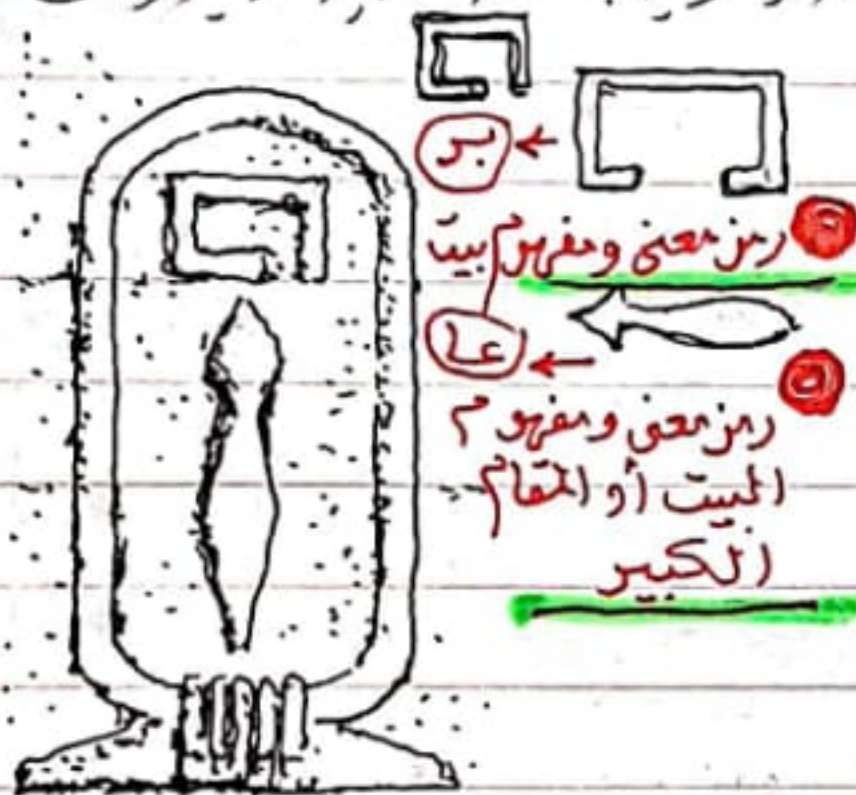 بر
رمز معنى ومفهوم بيت
عا
رمز معنى ومفهوم
البيت أو المقام
الكبير